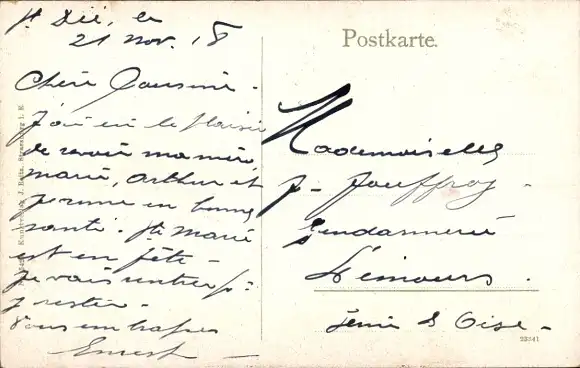 St Dié, le
21 nov. 18
Chère Cousine -
J'ai eu le plaisir
de revoir ma mère,
Marie, Arthur et
Jeanne en bonne
santé. Ste Marie
est en fête -
Je vais rentrer p.
y rester -
Vous embrasse
Ernest -
Postkarte.
Mademoiselle
J. Jouffroy -
Gendarmerie
Limours.
Seine & Oise -
23541
J. Beltz, Strassburg i. E.